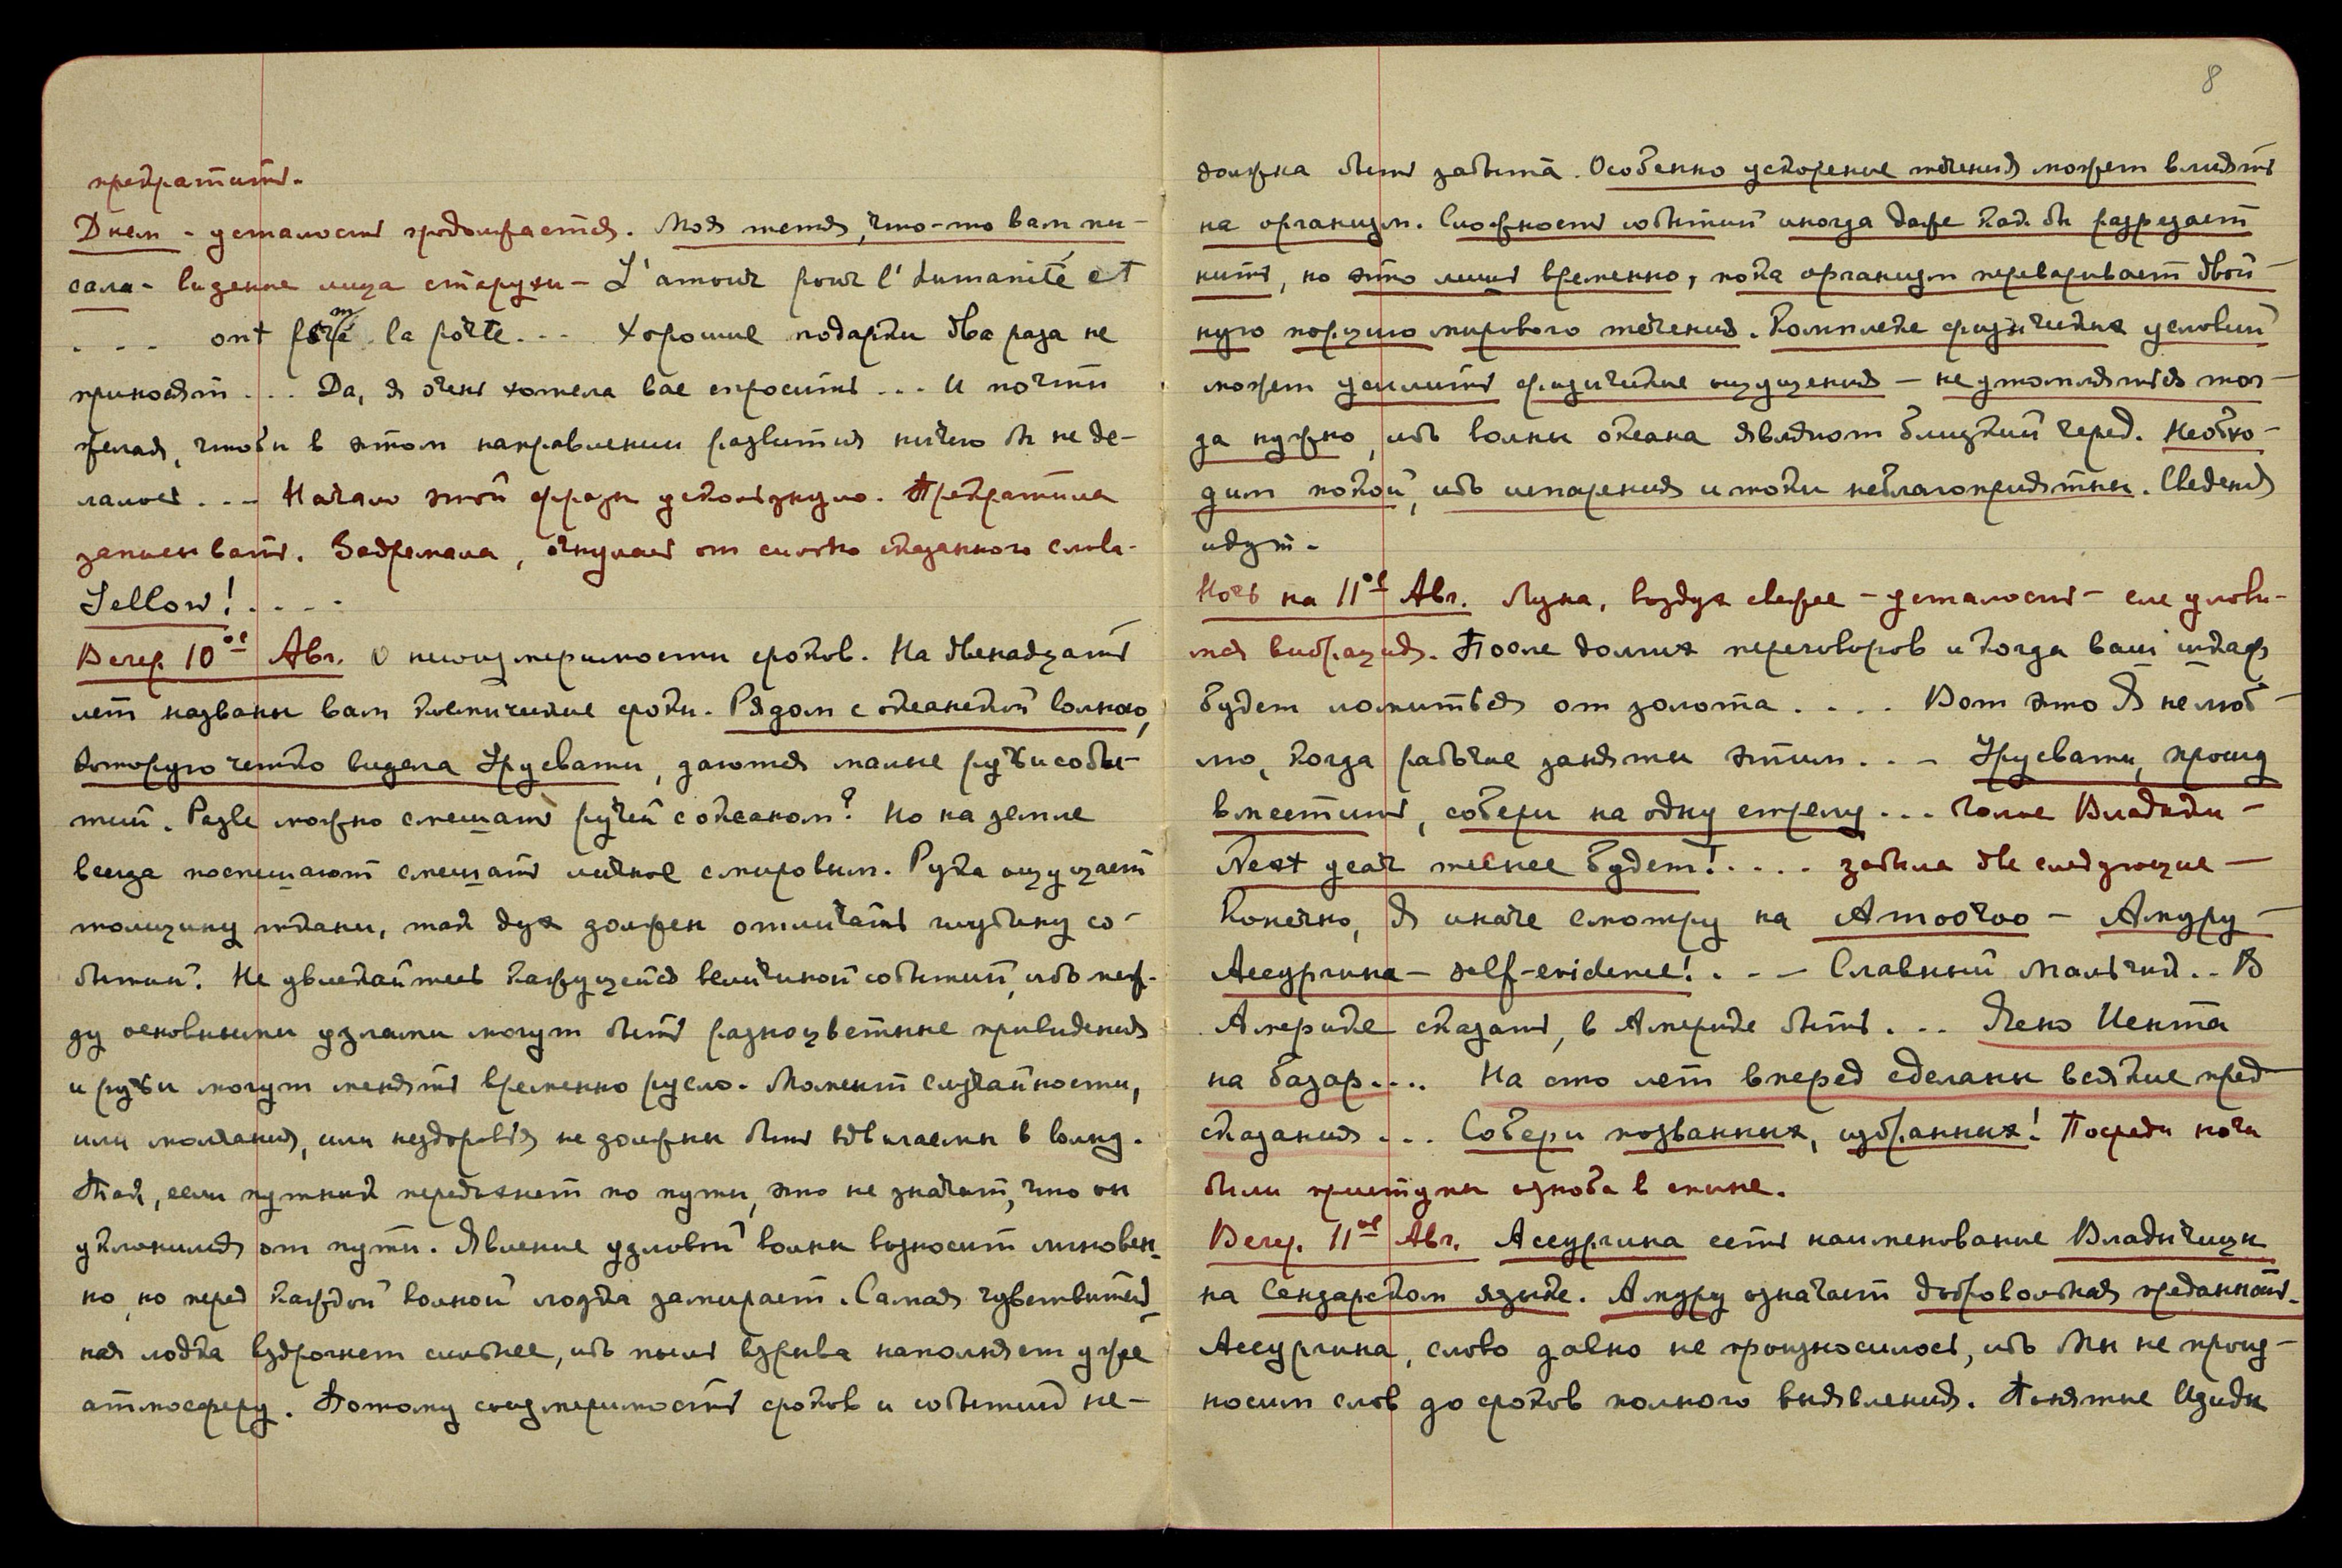 прекратить.
Днем - усталость продолжается. Моя тетя, что-то вам пи-
сала - видение лица старухи - L'amour pour l'humanité et
. . . ont fermé la porte. . . Хорошие подарки два раза не
приносят . . . Да, я очень хотела вас спросить . . . И почти
желая, чтобы в этом направлении развития ничего бы не де-
лалось . . . Начало этой фразы ускользнуло. Прекратила
записывать. Задремала, очнулась от сильно сказанного слова -
Yellow! . . . .
Вечер 10ое Авг. О несоизмеримости сроков. На двенадцать
лет названы вам космические сроки. Рядом с океанской волною,
которую четко видела Урусвати, даются малые ручьи собы-
тий. Разве можно смешать ручей с океаном? Но на земле
всегда поспешают смешать личное с мировым. Рука ощущает
толщину ткани, так дух должен отличать глубину со-
бытий. Не увлекайтесь кажущейся величиной событий, ибо меж-
ду основными узлами могут быть разноцветные привидения
и ручьи могут менять временно русло. Момент случайности,
или молчания, или нездоровья не должны быть вдвигаемы в волну.
Так, если путник передохнет по пути, это не значит, что он
уклонился от пути. Явление узловой волны возносит мгновен-
но, но перед каждой волной лодка замирает. Самая чувствитель-
ная лодка вздрогнет сильнее, ибо пыль взрыва наполняет уже
атмосферу. Потому соизмеримость сроков и событий не-
8
должна быть забыта. Особенно ускорение течения может влиять
на организм. Сложность событий иногда даже как бы разрезает
нить, но это лишь временно, пока организм переваривает двой-
ную порцию мирового течения. Комплекс физических условий
может усилить физические ощущения - не утомляться тог-
да нужно, ибо волны океана являют близкий черед. Необхо-
дим покой, ибо испарения и токи неблагоприятны. Сведения
идут.
Ночь на 11ое Авг. Луна, воздух свежее - усталость - еле улови-
мая вибрация. После долгих переговоров и когда ваш шкаф
будет ломиться от золота . . . . Вот это Я не люб-
лю, когда рабочие заняты этим . . - Урусвати, прошу
вместить, собери на одну стрелу . . . Голос Владыки -
Next year теснее будет! . . . . забыла две следующие -
Конечно, Я иначе смотрю на Amooroo - Амуру -
Ассургина - self-evidence! . - - Славный мальчик . . В
Америке сказать, в Америке быть . . . Ясно Иента
на базар . . . . На сто лет вперед сделаны всякие пред-
сказания . . . Собери позванных, избранных! Посреди ночи
были приступы озноба в спине.
Вечер. 11ое Авг. Ассургина есть наименование Владычицы
на Сензарском языке. Амуру означает добровольная преданность.
Ассургина, слово давно не произносилось, ибо Мы не произ-
носим слов до сроков полного выявления. Понятие Изиды